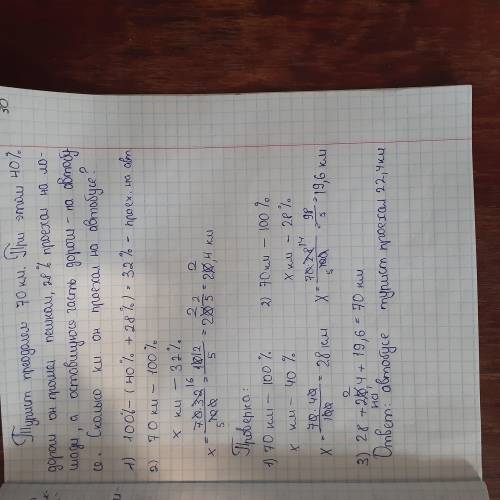 30
Турист преодолел 70 км. При этом 40%
дороги он прошёл пешком, 28% проехал на ло-
шади, а оставшуюся часть дороги - на автобу
се. Сколько км он проехал на автобусе?
1) 100% - (40% + 28%) = 32% - проех. на авт
2) 70 км - 100%
x км - 32%
x = 70·32 16 / 100 5 = 112 / 5 = 22,4 км
Проверка:
1) 70 км - 100% 2) 70 км - 100%
x км - 40% x км - 28%
X = 70·40 / 100 = 28 км X = 70·28 14 / 100 5 = 98 / 5 = 19,6 км
3) 28 + 22,4 + 19,6 = 70 км
на
Ответ: автобусе турист проехал 22,4 км